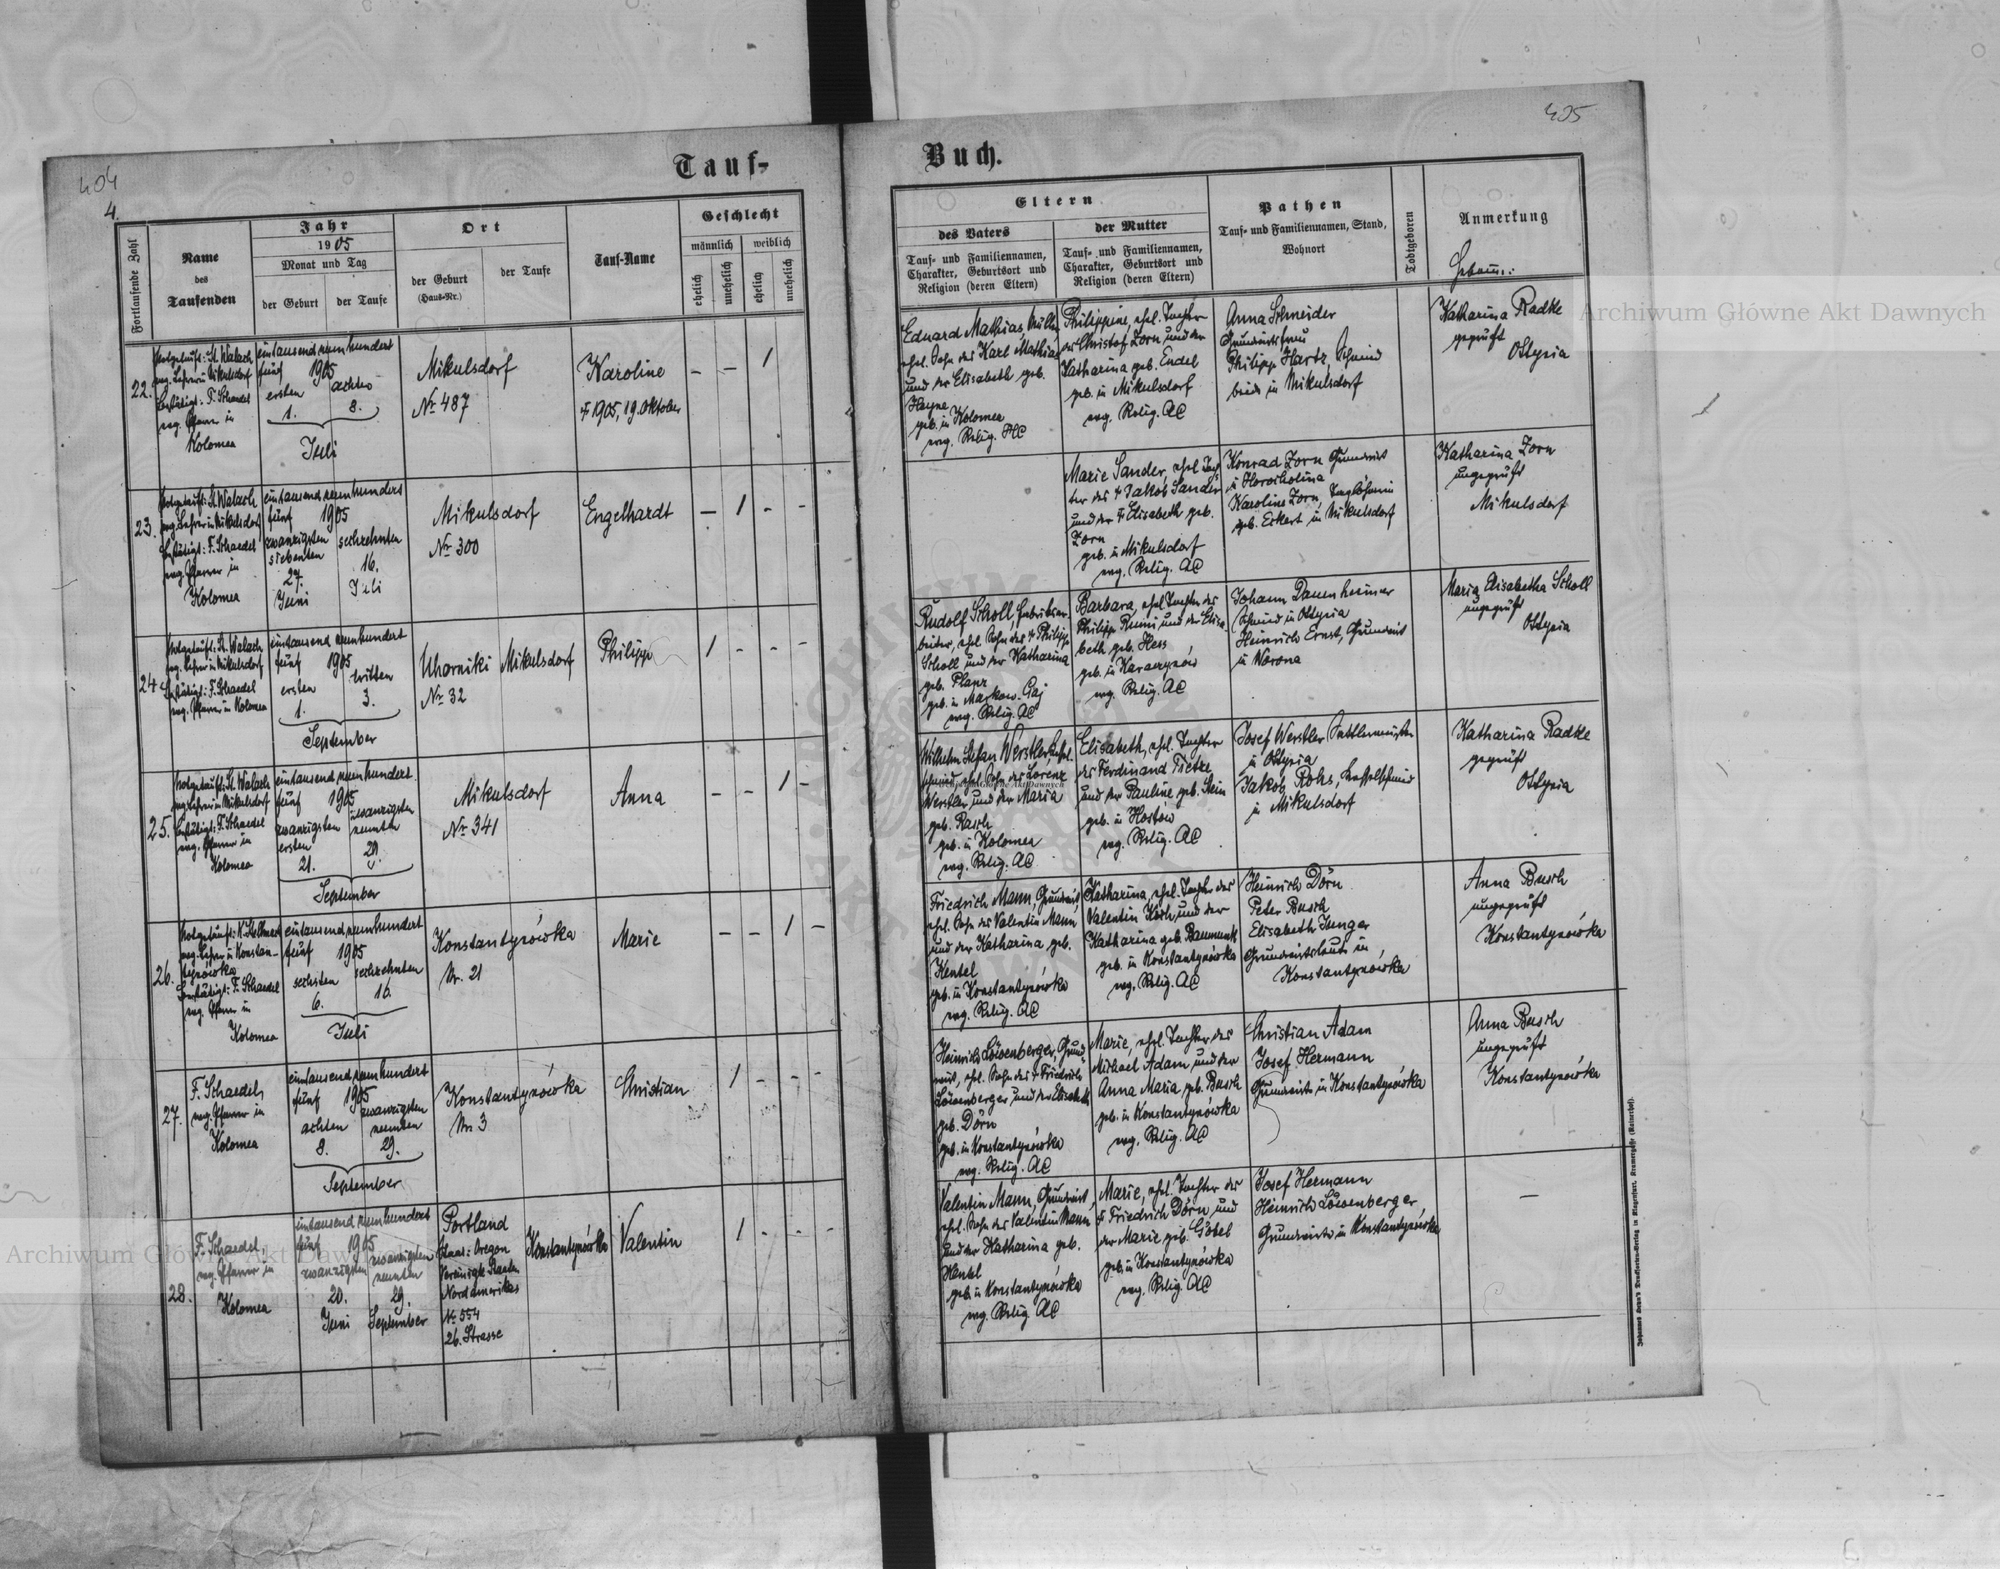 404
4.
Tauf-
Fortlaufende Zahl
Name
des
Taufenden
Jahr
1905
Monat und Tag
der Geburt
der Taufe
Ort
der Geburt
(Haus-Nr.)
der Taufe
Tauf-Name
Geschlecht
männlich
weiblich
ehelich
unehelich
ehelich
unehelich
22.
Notgetauft: St. Walach
evg. Lehrer in Mikulsdorf
bestätigt: F. Schaedel
evg. Pfarrer in
Kolomea
eintausend neunhundert
fünf 1905
ersten achten
1. 8.
Juli
Mikulsdorf
Nr. 487
Karoline
† 1905, 19. Oktober
- - 1
23.
Notgetauft: St. Walach
evg. Lehrer in Mikulsdorf
bestätigt: F. Schaedel
evg. Pfarrer in
Kolomea
eintausend neunhundert
fünf 1905
zwanzigsten sechzehnten
siebenten
27. 16.
Juni Juli
Mikulsdorf
Nr. 300
Engelhardt
- 1 - -
24
Notgetauft: St. Walach
evg. Lehrer in Mikulsdorf
bestätigt: F. Schaedel
evg. Pfarrer in Kolomea
eintausend neunhundert
fünf 1905
ersten dritten
1. 3.
September
Uhorniki
Nr. 32
Mikulsdorf
Philipp
1 - - -
25.
Notgetauft: St. Walach
evg. Lehrer in Mikulsdorf
bestätigt: F. Schaedel
evg. Pfarrer in
Kolomea
eintausend neunhundert
fünf 1905
zwanzigsten zwanzigsten
ersten neunten
21. 29.
September
Mikulsdorf
Nr. 341
Anna
- - 1 -
26.
Notgetauft:
evg. Lehrer in Konstan-
tynówka
bestätigt: F. Schaedel
evg. Pfarrer in
Kolomea
eintausend neunhundert
fünf 1905
sechsten sechzehnten
6. 16.
Juli
Konstantynówka
Nr. 21
Marie
- - 1 -
27.
F. Schaedel,
evg. Pfarrer in
Kolomea
eintausend neunhundert
fünf 1905
achten zwanzigsten
neunten
8. 29.
September
Konstantynówka
Nr. 3
Christian
1 - - -
28.
F. Schaedel,
evg. Pfarrer in
Kolomea
eintausend neunhundert
fünf 1905
zwanzigsten zwanzigsten
neunten
20. 29.
Juni September
Portland
Staat: Oregon
Vereinigte Staaten
Nordamerikas
Nr. 554
26. Strasse
Konstantynówka
Valentin
1 - - -
405
Buch.
Eltern
des Vaters
Tauf- und Familiennamen,
Charakter, Geburtsort und
Religion (deren Eltern)
der Mutter
Tauf- und Familiennamen,
Charakter, Geburtsort und
Religion (deren Eltern)
Pathen
Tauf- und Familiennamen, Stand,
Wohnort
Todtgeboren
Anmerkung
Hebam.:
Eduard Mathias,
ehel. Sohn des Karl Mathias
und der Elisabeth geb.
Heyne
geb. in Kolomea
evg. Relig. HC
Philippine, ehel. Tochter
des Christof Zorn und der
Katharina geb. Endel
geb. in Mikulsdorf
evg. Relig. AC
Anna Schneider
Grundwirtsfrau
Philipp Hartz, Schmied
beide in Mikulsdorf
Katharina Radke
geprüft
Ottynia
Marie Sander, ehel. Toch-
ter des † Jakob Sander
und der † Elisabeth geb.
Zorn
geb. in Mikulsdorf
evg. Relig. AC
Konrad Zorn Grundwirt
in Horocholina
Karoline Zorn, Taglöhnerin
geb. Eckert in Mikulsdorf
Katharina Zorn
ungeprüft
Mikulsdorf
Rudolf Scholl Fabriksar-
beiter, ehel. Sohn des † Philipp
Scholl und der Katharina
geb. Planz
geb. in Markow-Gaj
evg. Relig. AC
Barbara, ehel. Tochter des
Philipp Rumi und der Elisa-
beth geb. Hess
geb. in
evg. Relig. AC
Johann Dauenheimer
Schmied in Ottynia
Heinrich Ernst, Grundwirt
in Worona
Maria Elisabetha Scholl
ungeprüft
Ottynia
Wilhelm Stefan Werstler, Kessel-
schmied, ehel. Sohn des Lorenz
Werstler und der Maria
geb. Rasch
geb. in Kolomea
evg. Relig. AC
Elisabeth, ehel. Tochter
des Ferdinand Tietze
und der Pauline geb. Stein
geb. in Hostów
evg. Relig. AC
Josef Werstler Sattlermeister
in Ottynia
Jakob Rohs, Kesselschmied
in Mikulsdorf
Katharina Radke
geprüft
Ottynia
Friedrich Mann, Grundwirt
ehel. Sohn des Valentin Mann
und der Katharina geb.
Hentel
geb. in Konstantynówka
evg. Relig. AC
Katharina, ehel. Tochter des
Valentin Koch und der
Katharina geb. Baumunk
geb. in Konstantynówka
evg. Relig. AC
Heinrich Dörn
Peter Busch
Elisabeth Junger
Grundwirtsleute in
Konstantynówka
Anna Busch
ungeprüft
Konstantynówka
Heinrich Löwenberger, Grund-
wirt, ehel. Sohn des † Friedrich
Löwenberger und der Elisabeth
geb. Dörn
geb. in Konstantynówka
evg. Relig. AC
Marie, ehel. Tochter des
Michael Adam und der
Anna Maria geb. Busch
geb. in Konstantynówka
evg. Relig. AC
Christian Adam
Josef Hermann
Grundwirte in Konstantynówka
Anna Busch
ungeprüft
Konstantynówka
Valentin Mann, Grundwirt
ehel. Sohn des Valentin Mann
und der Katharina geb.
Hentel
geb. in Konstantynówka
evg. Relig. AC
Marie, ehel. Tochter des
† Friedrich Dörn und
der Marie geb. Göbel
geb. in Konstantynówka
evg. Relig. AC
Josef Hermann
Heinrich Löwenberger
Grundwirte in Konstantynówka
—
Archiwum Główne Akt Dawnych
Archiwum Główne Akt Dawnych
Archiwum Główne Akt Dawnych